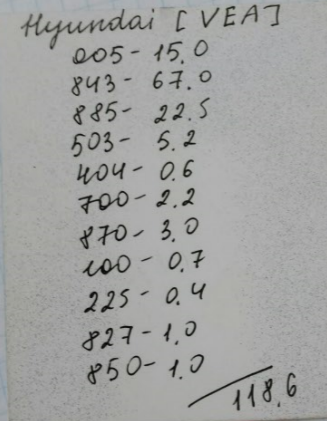 Hyundai [VEA]
005- 15.0
843- 67.0
885- 22.5
503- 5.2
404- 0.6
700- 2.2
870- 3.0
100- 0.7
225- 0.4
827- 1.0
850- 1.0
118.6